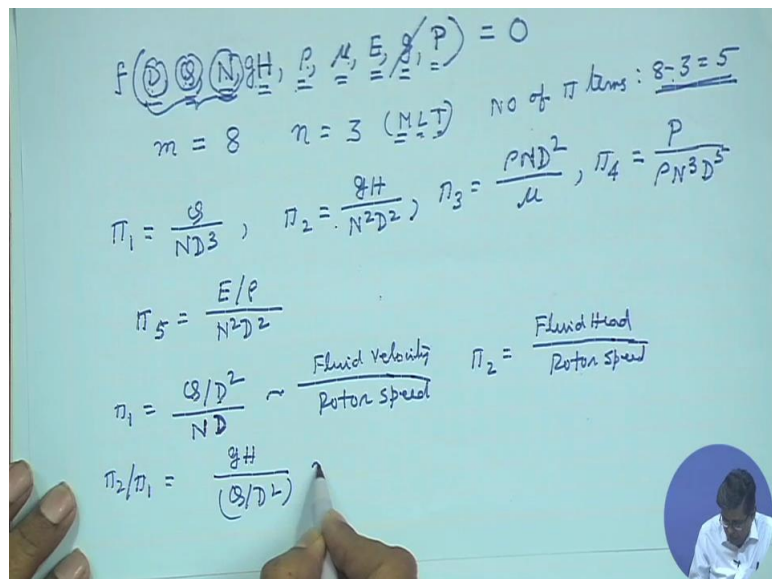 f(D, Q, N, gH, ρ, μ, E, g, P) = 0
m = 8 n = 3 (MLT) NO of π terms : 8-3 = 5
π₁ = Q / ND³ , π₂ = gH / N²D² , π₃ = ρND² / μ , π₄ = P / ρN³D⁵
π₅ = E/ρ / N²D²
π₁ = Q/D² / ND ~ Fluid Velocity / Rotor Speed π₂ = Fluid Head / Rotor Speed
π₂/π₁ = gH / (Q/D²)